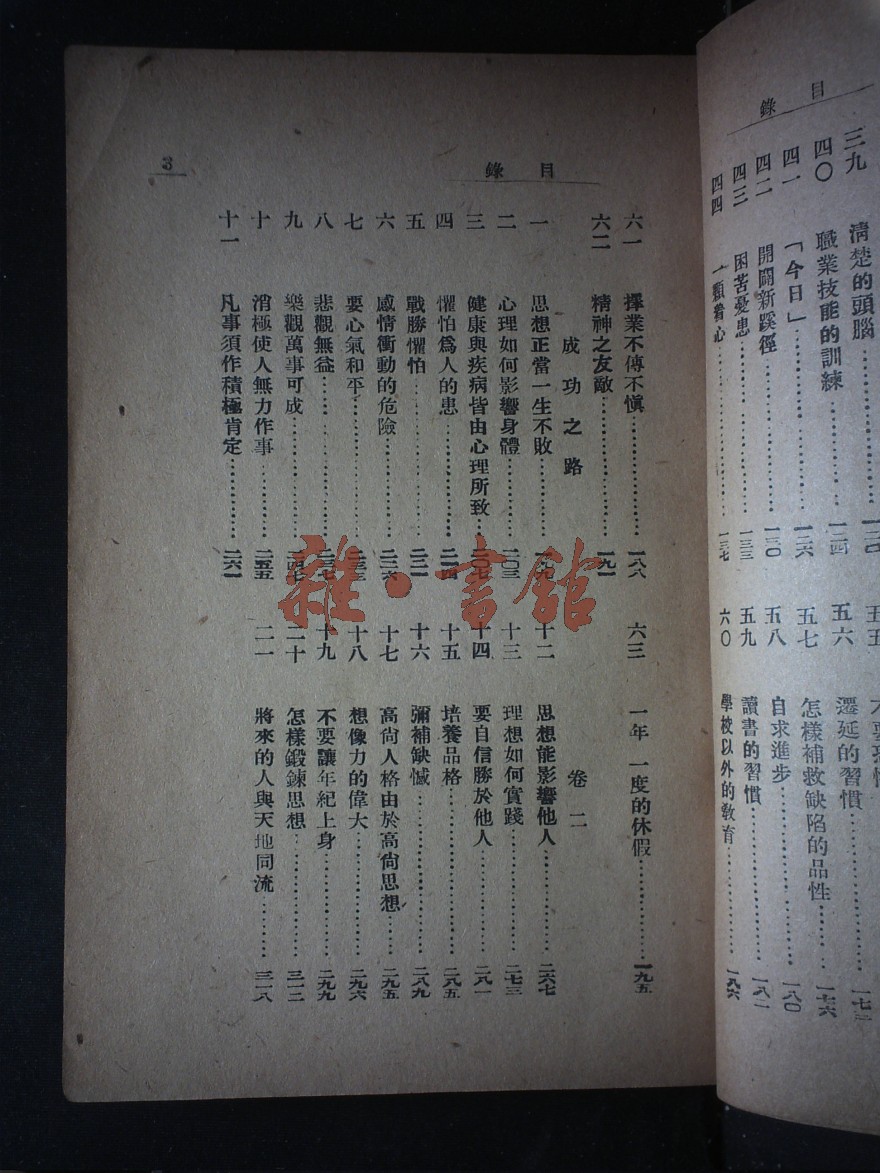 目錄
三九 清楚的頭腦
四〇 職業技能的訓練 一二四
四一 「今日」 一二六
四二 開闢新蹊徑 一三〇
四三 困苦憂患 一三三
四四 一顆善心 一三七
五五
五六 遷延的習慣
五七 怎樣補救缺陷的品性 一七六
五八 自求進步 一八〇
五九 讀書的習慣 一八二
六〇 學校以外的教育 一八六
目錄
3
六一 擇業不傳不慎 一八八
六二 精神之友敵 一九一
六三 一年一度的休假 一九五
成功之路 卷二
一 思想正當一生不敗 一九九
二 心理如何影響身體 二〇三
三 健康與疾病皆由心理所致 二〇七
四 懼怕爲人的患 二一四
五 戰勝懼怕 二二一
六 感情衝動的危險 二二六
七 要心氣和平 二三三
八 悲觀無益 二三七
九 樂觀萬事可成 二四七
十 消極使人無力作事 二五五
十一 凡事須作積極肯定 二六一
十二 思想能影響他人 二六七
十三 理想如何實踐 二七三
十四 要自信勝於他人 二八一
十五 培養品格 二八五
十六 彌補缺憾 二八九
十七 高尚人格由於高尚思想 二九五
十八 想像力的偉大 二九六
十九 不要讓年紀上身 二九九
二十 怎樣鍛鍊思想 三一二
二一 將來的人與天地同流 三一八
雜·書館